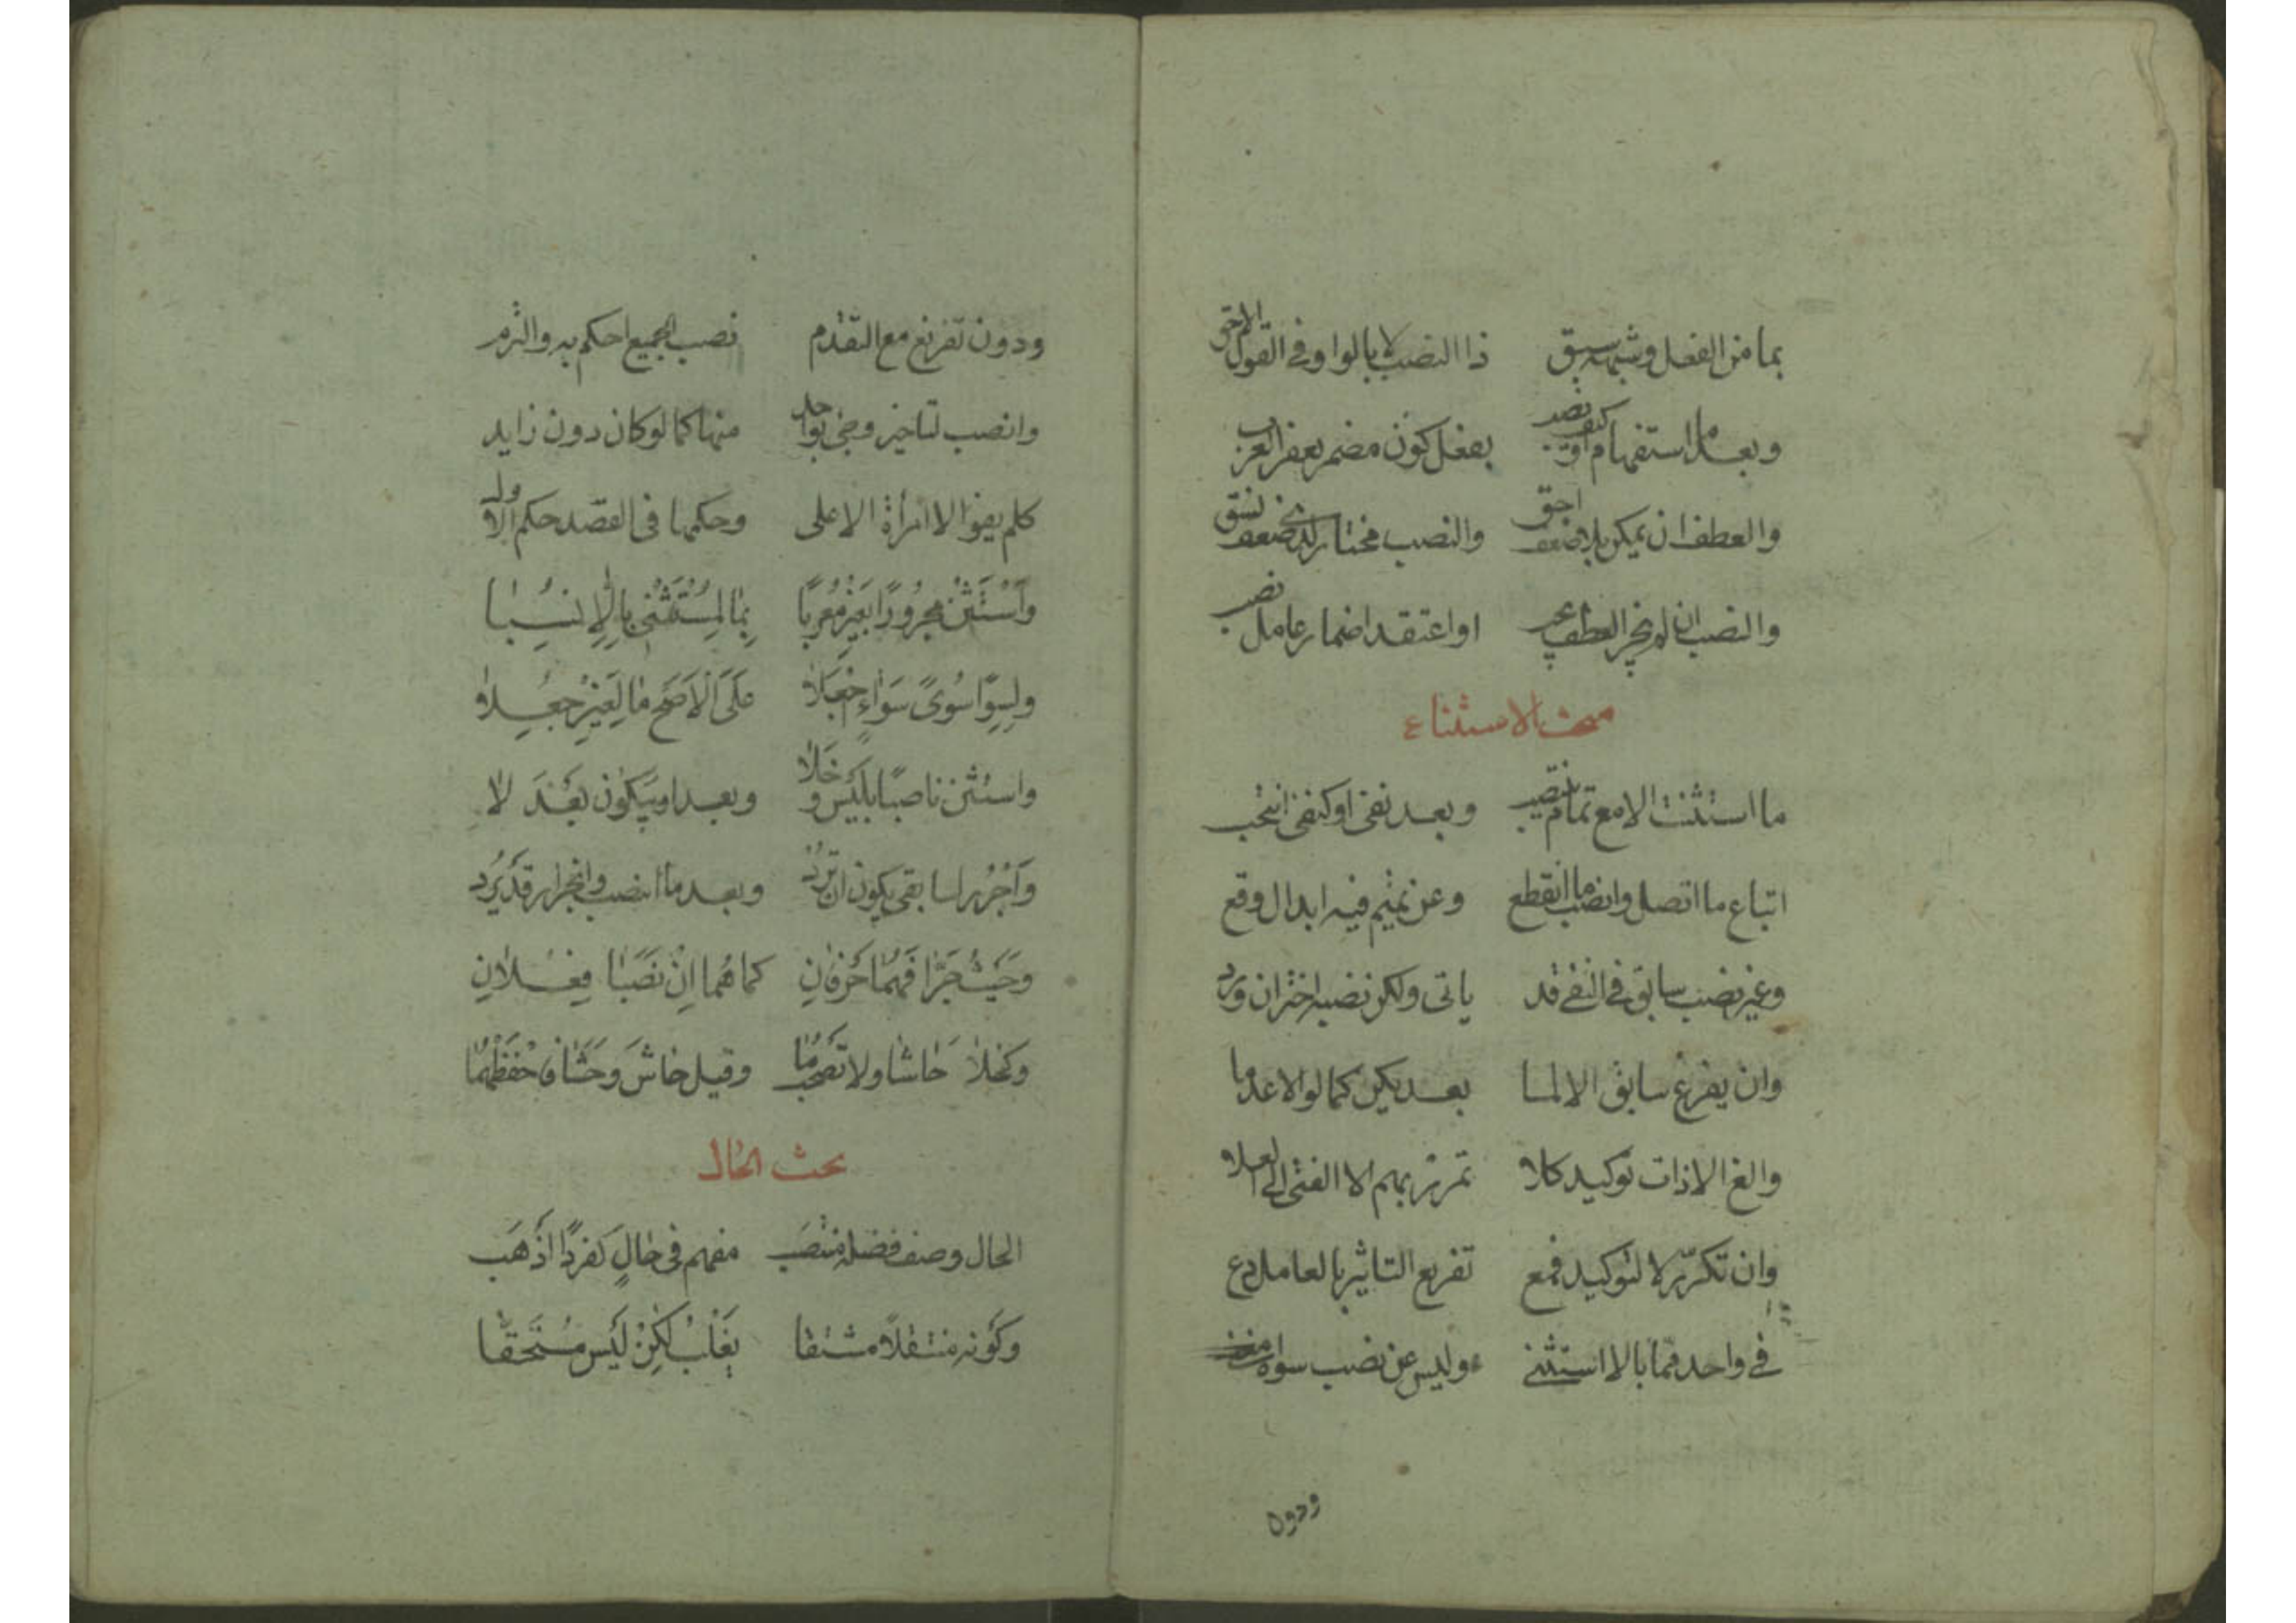 بما من الفعل وشبهه سبق ذا النصب لا بالواو في القول الاحق
وبعد ما استفهام او كيف نصب بفعل كون مضمر بعض العرب
والعطف ان يمكن بلا ضعف احق والنصب مختار لدى ضعف نسق
والنصب ان لم يجز العطف يجب او اعتقد اضمار عامل نصب
مبحث الاستثناء
ما استثنت الا مع تمام ينتصب وبعد نفى او كنفى انتخب
اتباع ما اتصل وانصب ما انقطع وعن تميم فيه ابدال وقع
وغير نصب سابق في النفى قد ياتى ولكن نصبه اختر ان ورد
وان يفرغ سابق الا لما بعد يكن كما لو الا عدما
والغ الا ذات توكيد كلا تمرر بهم الا الفتى الا العلا
وان تكرر لا لتوكيد فمع تفريع التاثير بالعامل دع
في واحد مما بالا استثنى وليس عن نصب سواه مغنى
ودون
ودون تفريغ مع التقدم نصب الجميع احكم به والتزم
وانصب لتاخير وجئ بواحد منها كما لو كان دون زايد
كلم يفوا الا امرأة الا على وحكمها فى القصد حكم الاول
وَاسْتَثْنِ مجرُورًا بغَيْرٍ مُعْرَبًا بِمَا لِمُسْتَثْنًى بِالَّا نُسِبَا
ولِسِوًا سُوًى سَوَاءٍ اجْعَلَا عَلَى الْاَصَحِّ مَا لِغَيْرٍ جُعِلَا
واستثن ناصبًا بلَيْسَ وخَلَا وبعدا وبيَكُون بَعْدَ لا
وَاجْرُر بسابقى يكون ان تُرِدْ وبعد ما انصب وانجرار قَدْ يَرِد
وَحَيْثُ جَرَّا فَهُمَا حَرْفَانِ كما هُما اِنْ نَصَبَا فِعْلَانِ
وَكَخَلَا حَاشَا ولا تَصْحَبُ مَا وقيل حَاشَ وَحَشَا فَاحْفَظْهُمَا
بحث الحال
الحال وصف فضلة منتَصِب مفهم فى حَالٍ كفَرْدًا اَذْهَب
وكَوْنه منتقلًا مشتقا يَغْلِبُ لكِنْ لَيْسَ مُسْتَحَقَّا